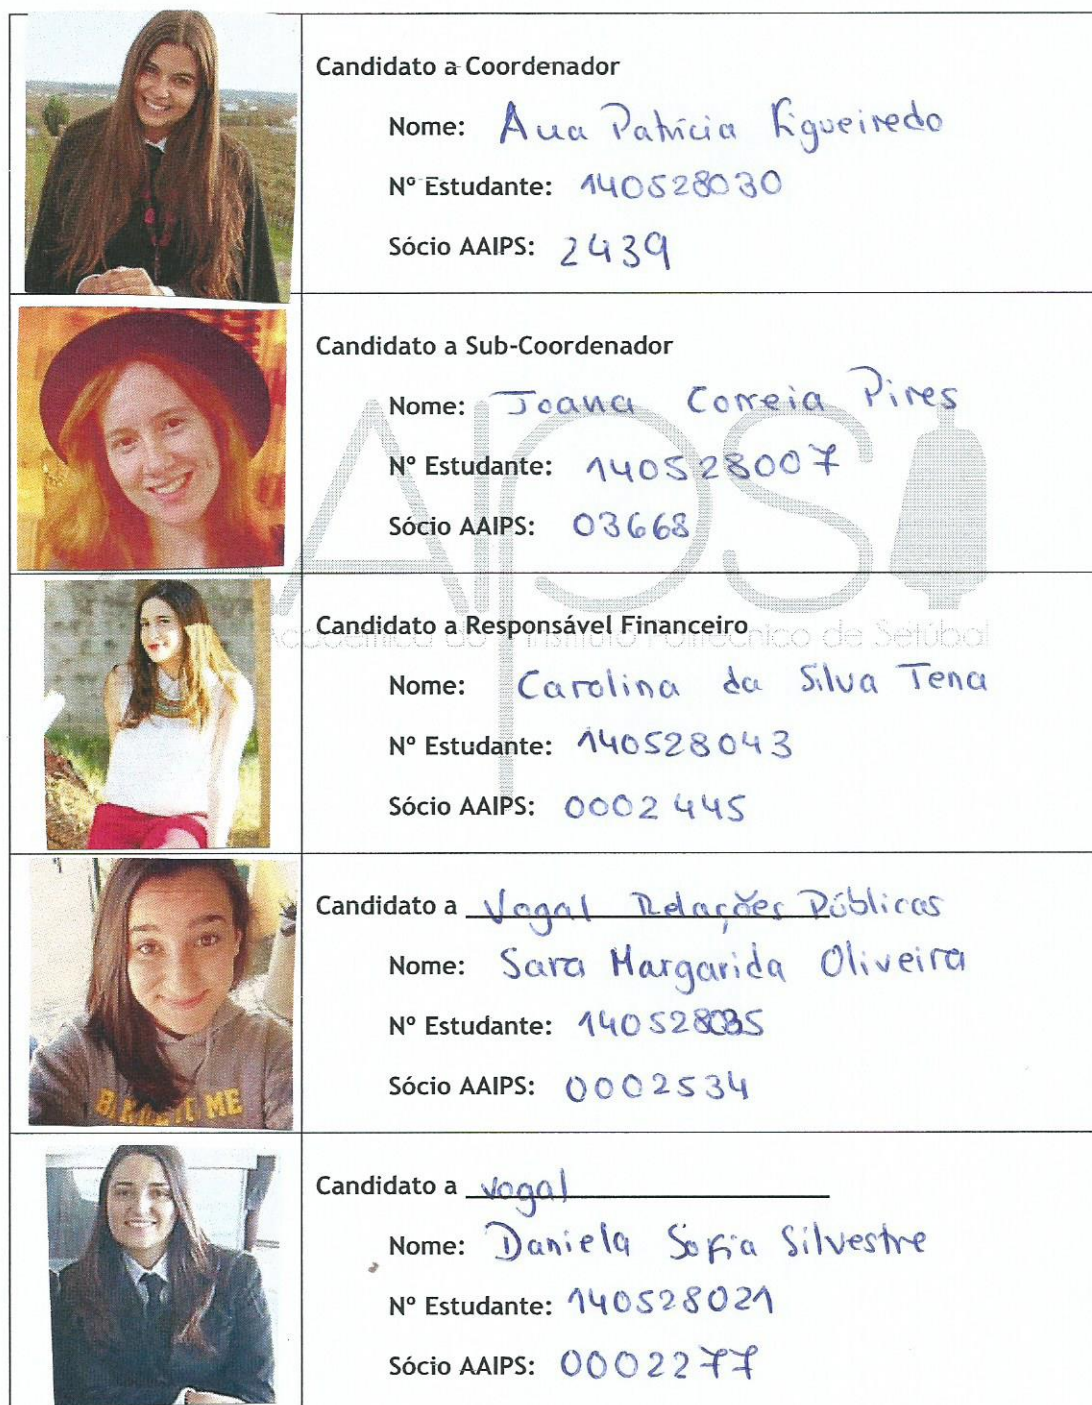 Candidato a Coordenador
Nome: Ana Patrícia Figueiredo
Nº Estudante: 140528030
Sócio AAIPS: 2439
Candidato a Sub-Coordenador
Nome: Joana Correia Pires
Nº Estudante: 140528007
Sócio AAIPS: 03668
AIPS
Académica do Instituto Politécnico de Setúbal
Candidato a Responsável Financeiro
Nome: Carolina da Silva Tena
Nº Estudante: 140528043
Sócio AAIPS: 0002445
Candidato a Vogal Relações Públicas
Nome: Sara Margarida Oliveira
Nº Estudante: 140528035
Sócio AAIPS: 0002534
ME
Candidato a vogal
Nome: Daniela Sofia Silvestre
Nº Estudante: 140528021
Sócio AAIPS: 0002277